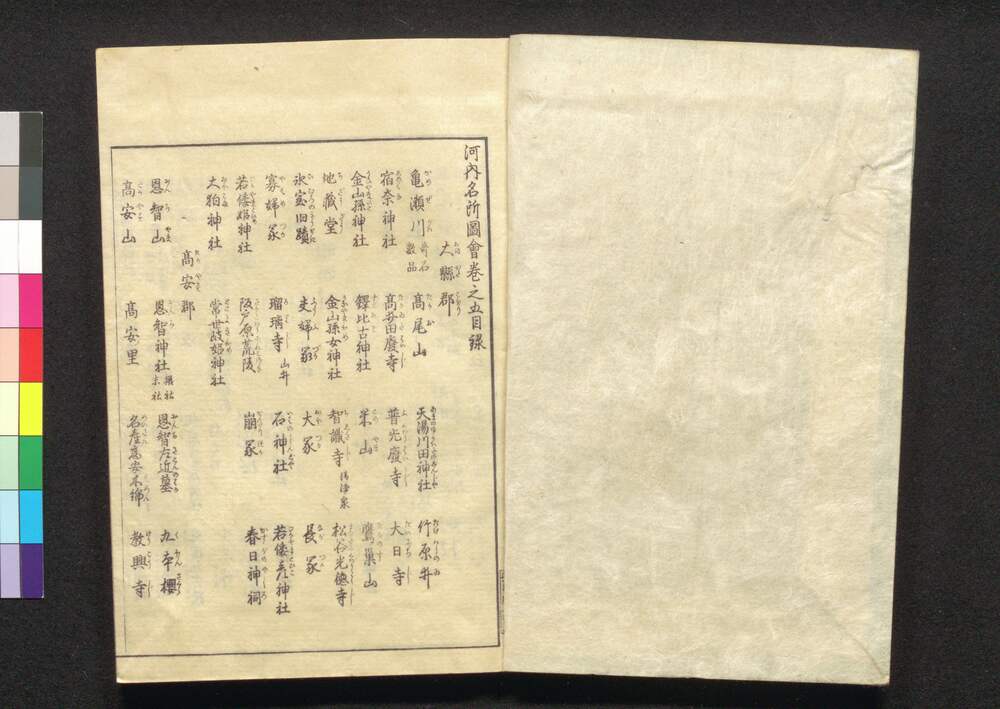 河内名所圖會卷之五目録
大縣郡
亀瀬川 奇石 數品
高尾山
天湯川田神社
竹原井
宿奈神社
高井田廢寺
普光廢寺
大日寺
金山孫神社
鐸比古神社
米山
鷹巣山
地藏堂
金山孫女神社
智識寺 清浄泉
松谷光德寺
氷室旧蹟
夫婦冢
大冢
長冢
寡婦冢
瑠璃寺 山井
石神社
若倭彦神社
若倭姫神社
阪戸原荒陵
崩冢
春日神祠
大狛神社
常世岐姫神社
高安郡
恩智山
恩智神社 攝社 末社
恩智左近墓
九本櫻
高安山
高安里
名産高安木綿
教興寺